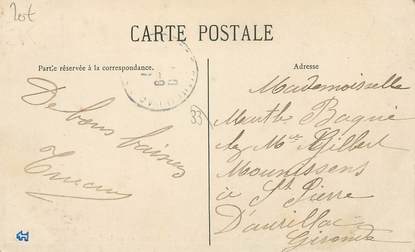 CARTE POSTALE
Partie réservée à la correspondance.
Adresse
De bons baisers
33
Mademoiselle
Marthe Baqué
chez Mme Gilbert
Mounissens
à St Pierre
D'aurillac
Gironde